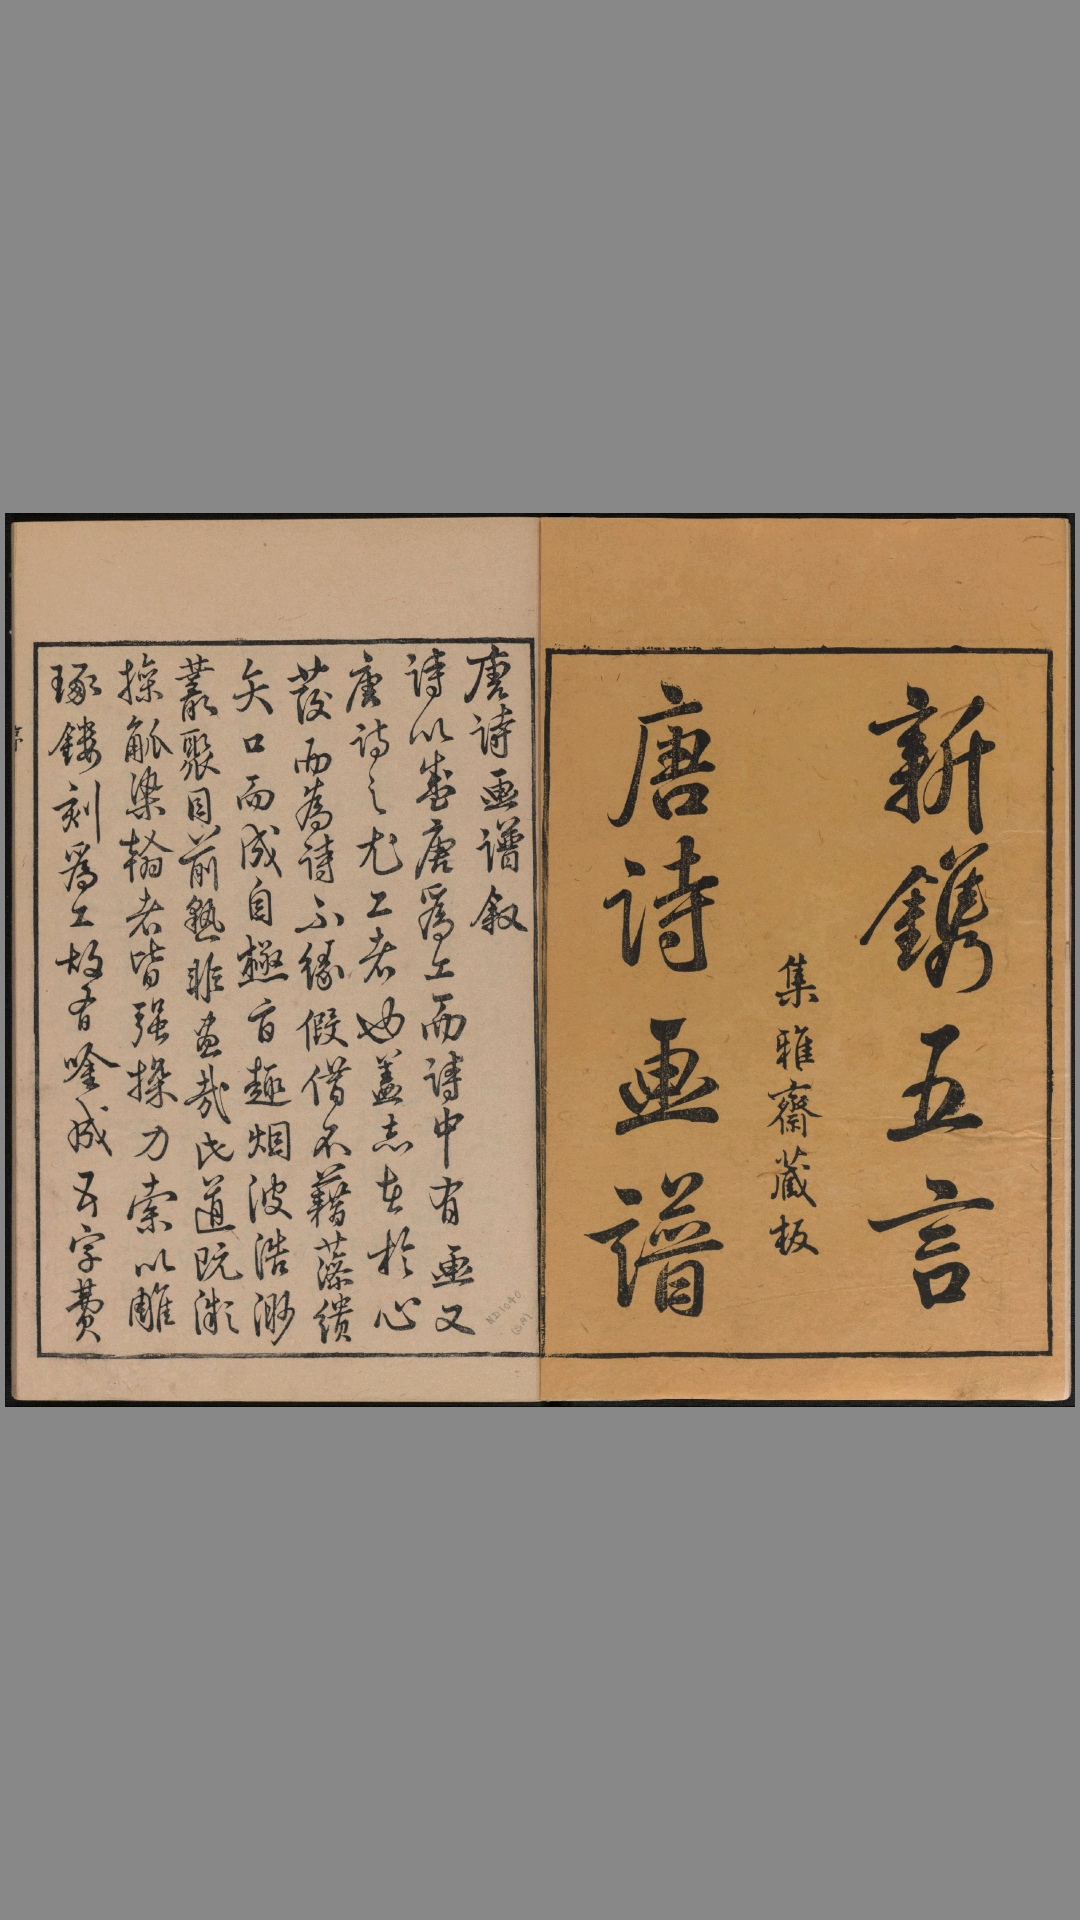 新鐫五言
集雅齋藏板
唐詩画譜
唐詩画譜叙
詩以盛唐爲工而詩中有画又
唐詩之尤工者也蓋志在於心
發而為詩不緣假借不藉藻繢
矢口而成自極旨趣烟波浩渺
叢聚目前孰非画哉氏道既漓
操觚染翰者皆强操刀索以雕
琢鏤刻爲工故有唫成五字費
ND1040
(SA)